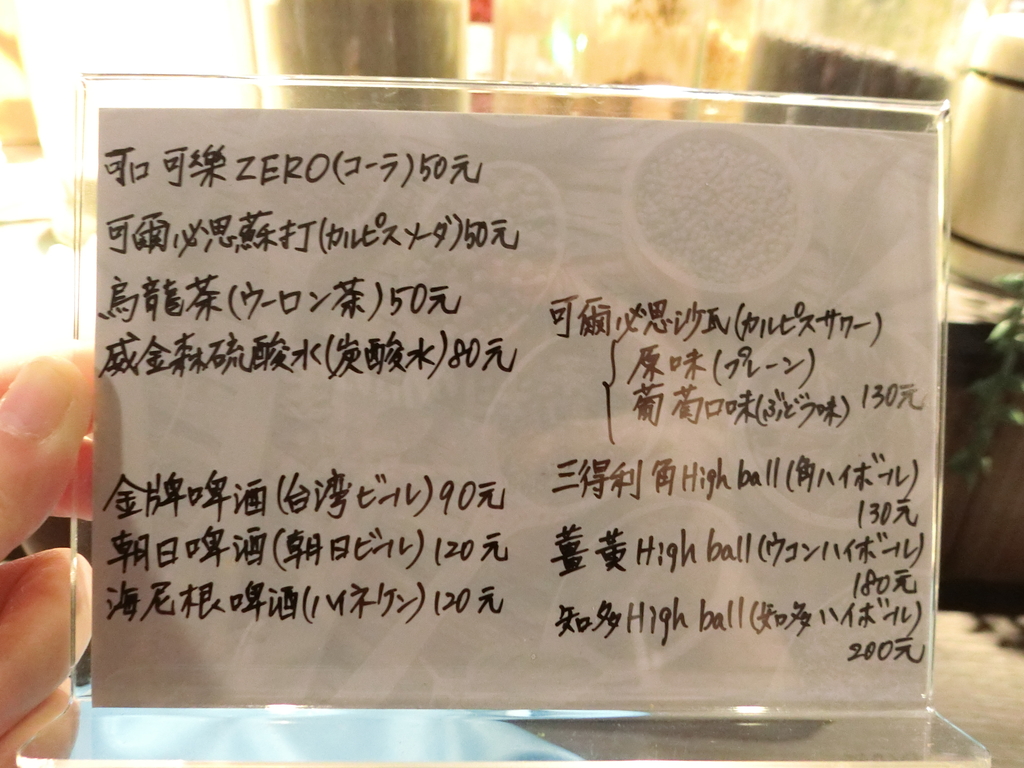 可口可樂ZERO(コーラ)50元
可爾必思蘇打(カルピスソーダ)50元
烏龍茶(ウーロン茶)50元
威金森硫酸水(炭酸水)80元
金牌啤酒(台湾ビール)90元
朝日啤酒(朝日ビール)120元
海尼根啤酒(ハイネケン)120元
可爾必思沙瓦(カルピスサワー)
原味(プレーン)
葡萄口味(ぶどう味) 130元
三得利角High ball(角ハイボール)
130元
薑黃High ball(ウコンハイボール)
180元
知多High ball(知多ハイボール)
200元